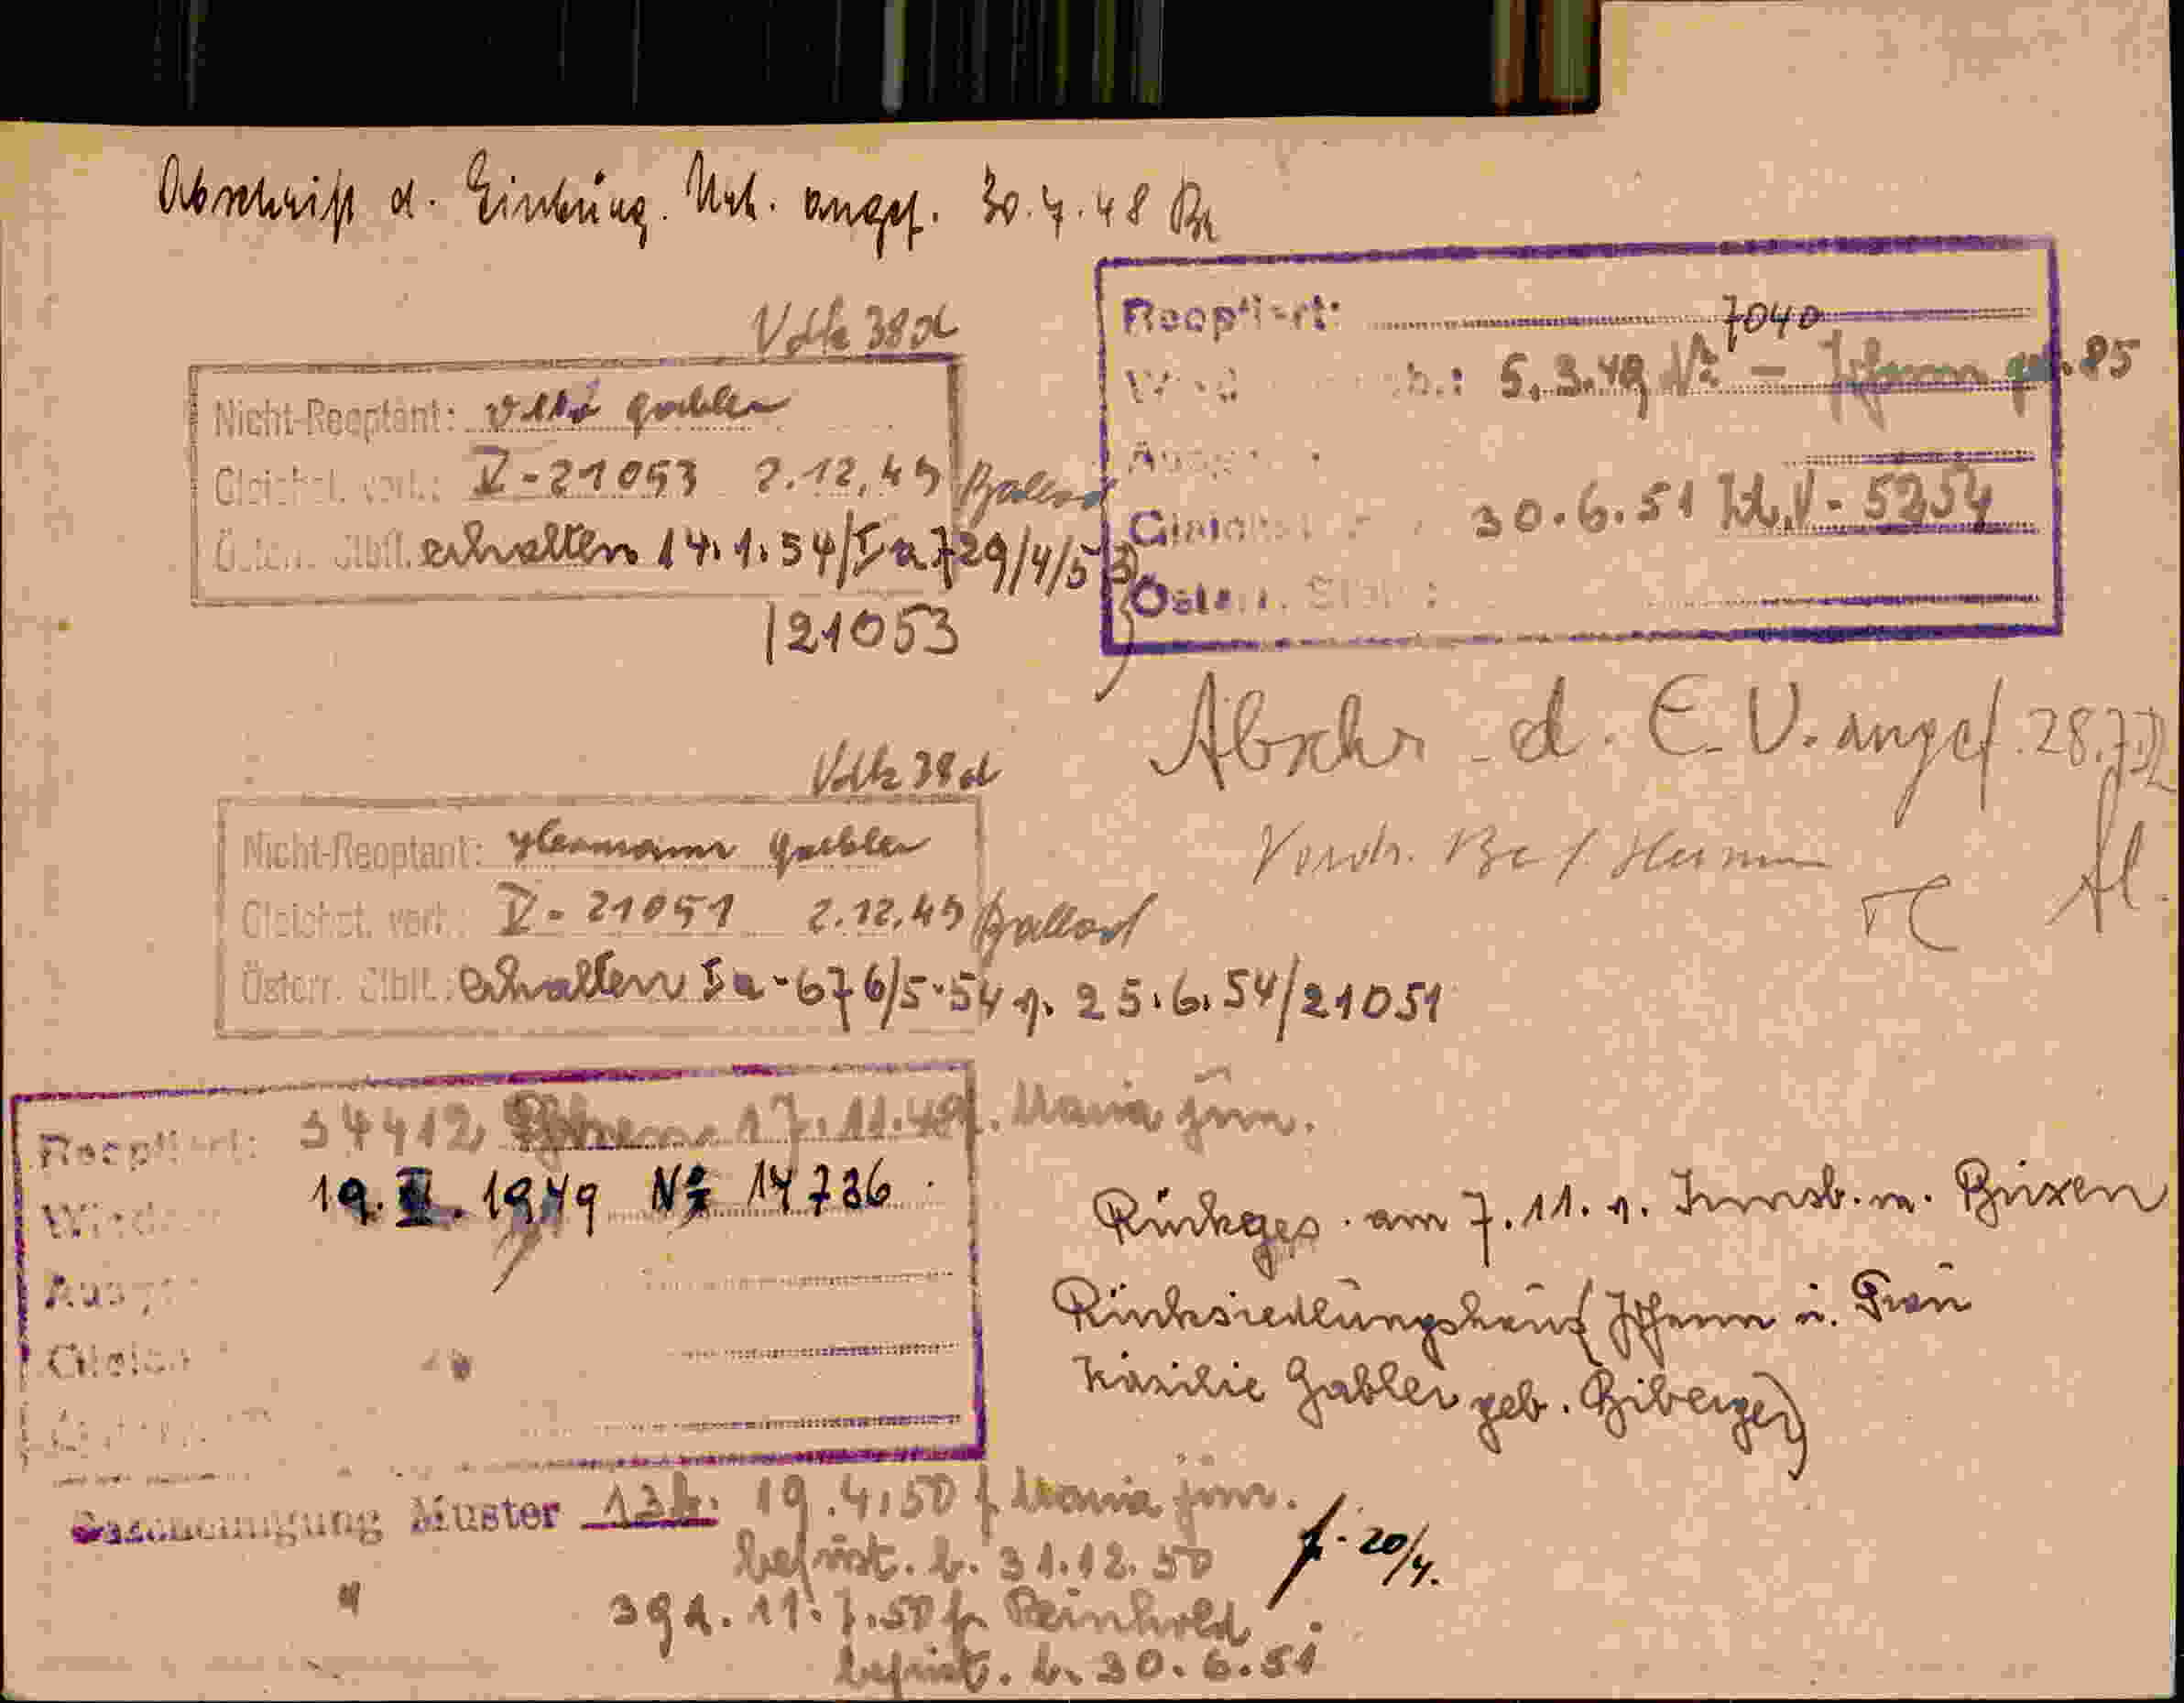 Abschrift d. Einbürg. Urk. angef. 30.7.48
Vdtk 38d
Nicht-Reoptant: Gabler
Gleichst. verl.: V-21053 2.12.49
Österr. Stbft. erhalten 14.1.54/Ia 729/4/53
/21053
Reoptiert: 7040
5.3.49 Nº - Johann geb. 85
30.6.51 V-5254
Österr. Stbft.:
Abschr. d. E.U. angef. 28.7.
Vdtk 38d
Nicht-Reoptant: Hermann Gabler
Gleichst. verl.: V-21051 2.12.49
Österr. Stbft.: erhalten Ia-676/5-54 v. 25.6.54/21051
Reoptiert: 34412 17.11.48 f. Maria jun.
19. 1949 Nº 14736
Rückges. am 7.11. v. Innsb. n. Brixen
Rücksiedlungshaus (Johann u. Frau
Käzilie Gabler geb. Biberger)
Bescheinigung Muster 13b. 19.4.50 f. Maria jun.
befrist. b. 31.12.50
f. 20/4.
" 39d. 11.7.50 f. Reinhold
befrist. b. 30.6.51